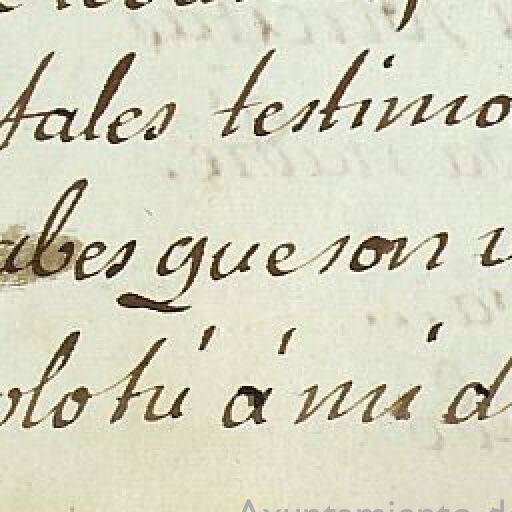 tales testimo
abes que son
olo tú á mí d
Ayuntamiento d